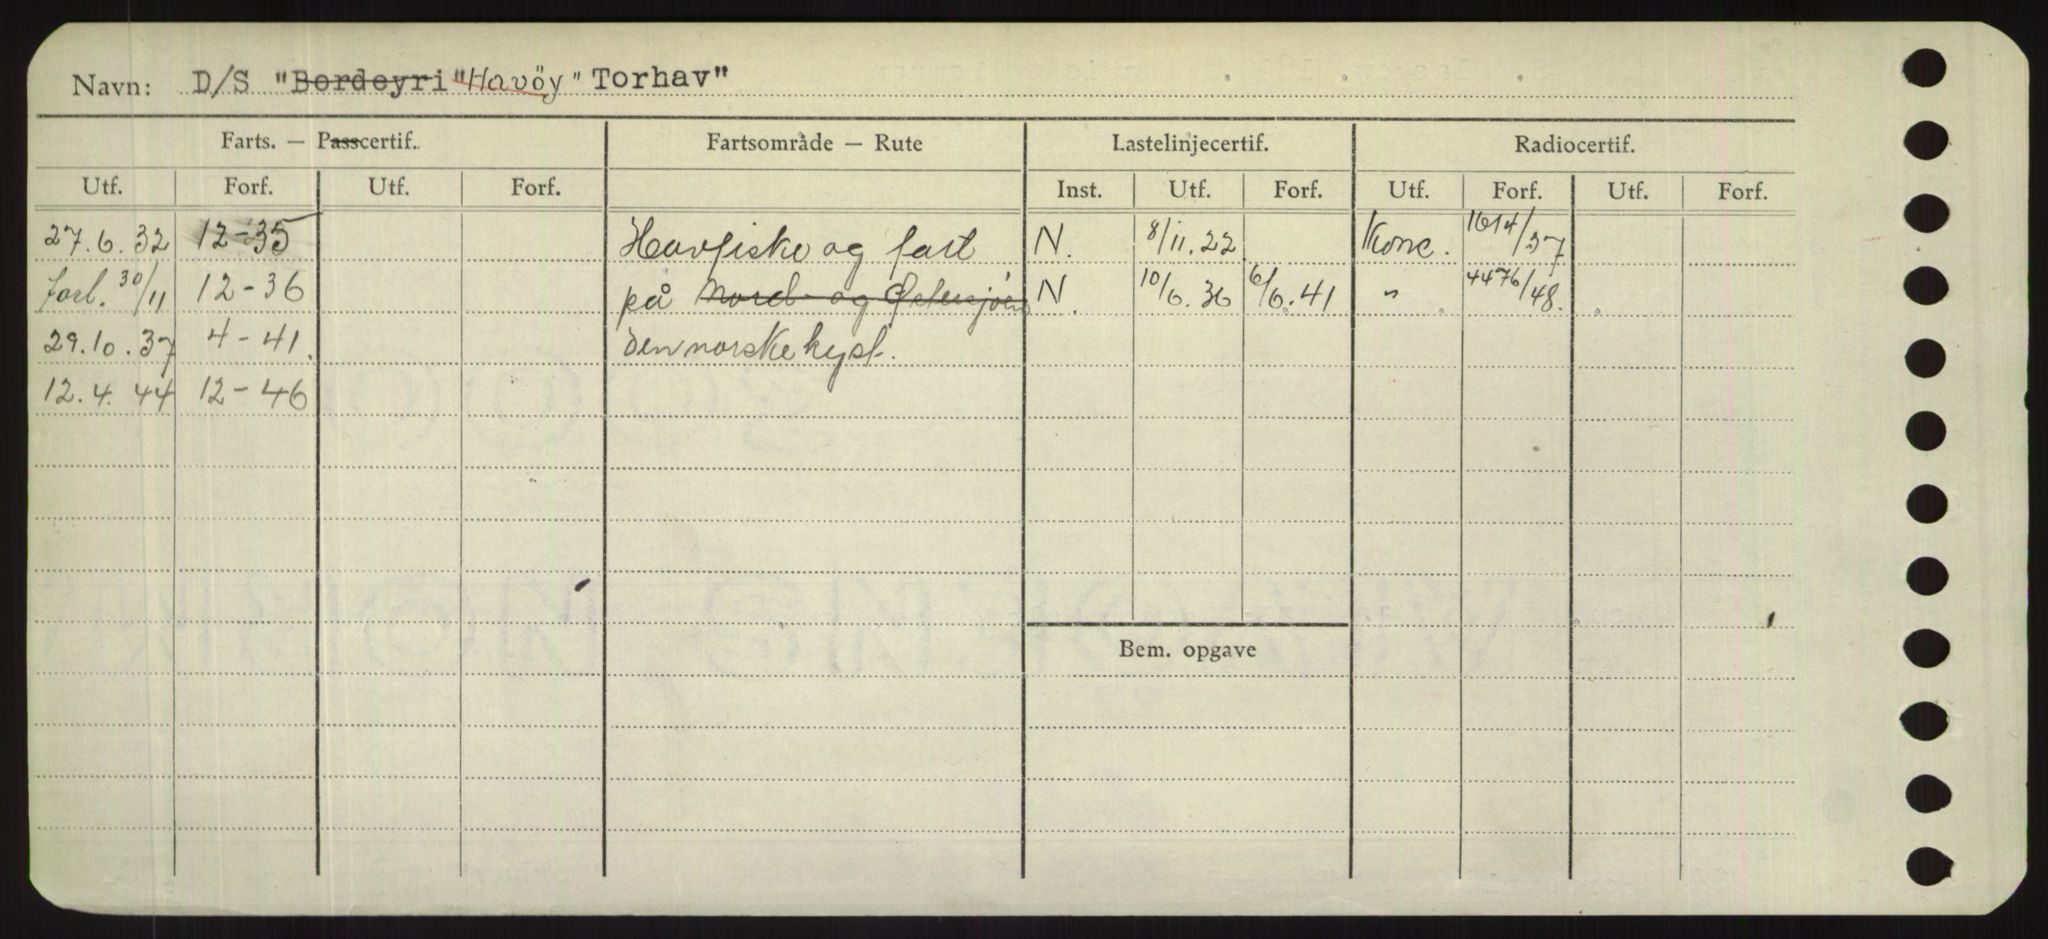 Navn: D/S "Bordeyri "Havöy" Torhav"
Farts. — Passcertif. Fartsområde — Rute Lastelinjecertif. Radiocertif.
Utf. Forf. Utf. Forf. Inst. Utf. Forf. Utf. Forf. Utf. Forf.
27.6.32 12-35 Havfiske og fart N. 8/11.22 Konc. 1614/37
forl. 30/11 12-36 på Nord- og Østersjøen N. 10/6.36 6/6.41 " 4476/48.
29.10.37 4-41. den norske kyst.
12.4.44 12-46
Bem. opgave